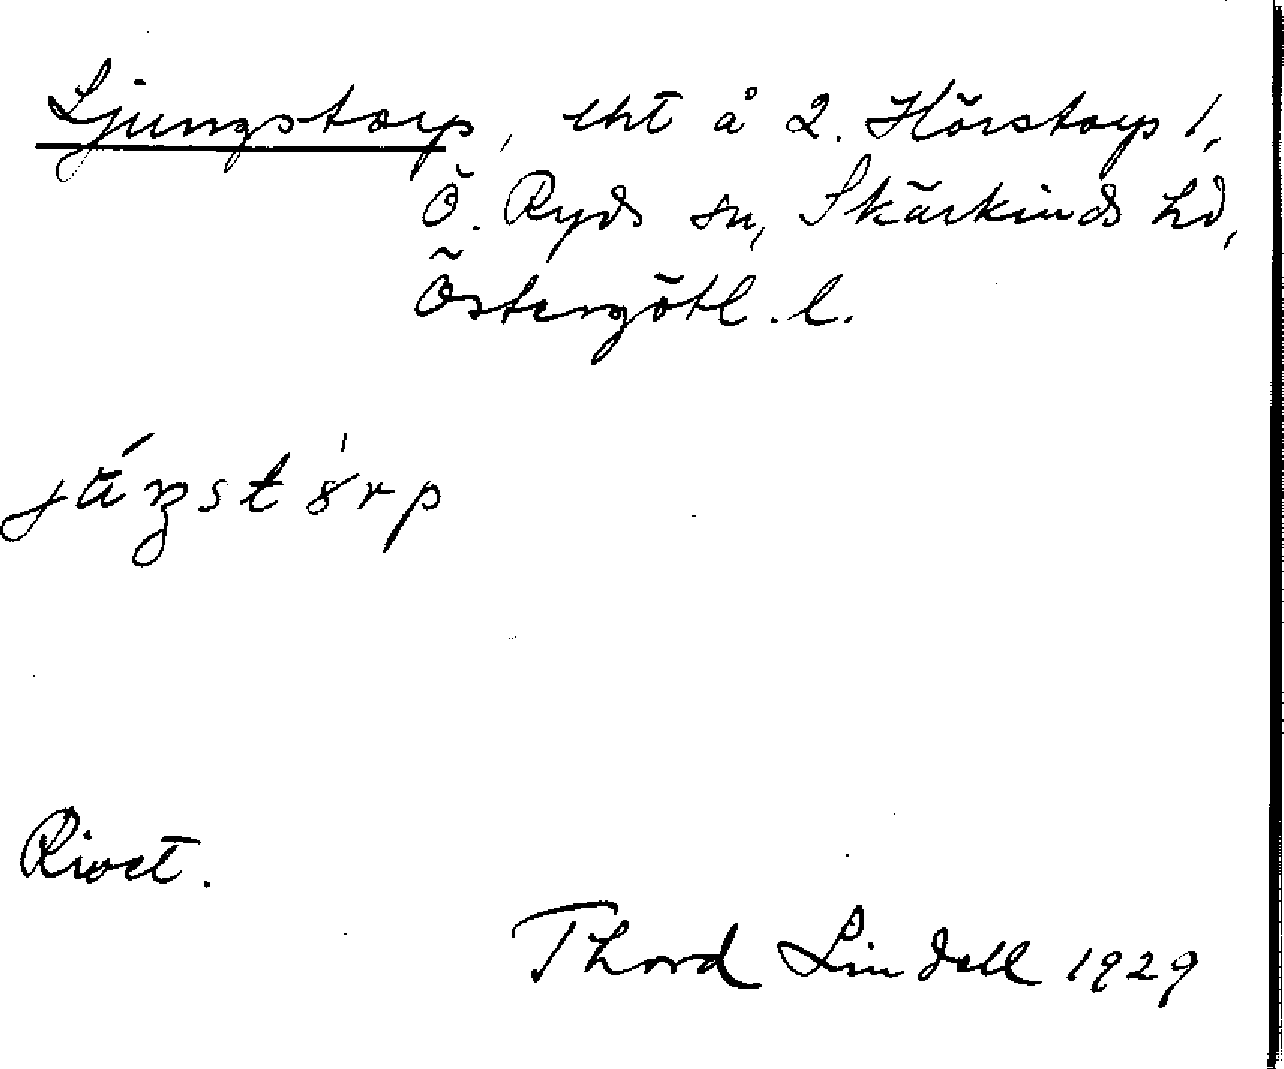 Ljungstorp, lht å 2. Hörstorp 1,
Ö. Ryds sn, Skärkinds hd,
Östergötl. l.
Rivet.
Thord Lindell 1929